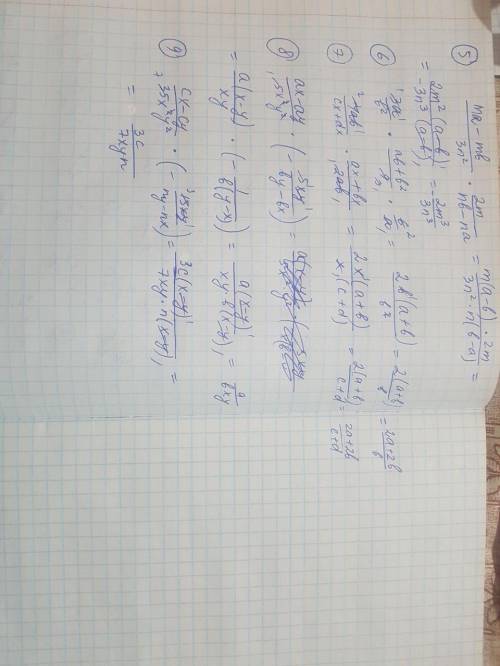 5) (ma - mb)/(3n²) · 2m/(nb - na) = (m(a-b) · 2m)/(3n² · n(b-a)) =
= (2m²(a-b))/(-3n³(a-b)) =
6) · (ab+b²) · = (2b(a+b))/b² = (2(a+b))/b = (2a+2b)/b
7) /(cx+dx) · (ax+bx)/(2ab) = (2x(a+b))/(x(c+d)) = (2(a+b))/(c+d) = (2a+2b)/(c+d)
8) (ax-ay)/(5x²y²) · (- /(by-bx)) =
= (a(x-y))/(xy) · (- /(b(y-x))) = (a(x-y))/(xy·b(x-y)) = a/(bxy)
9) (cx-cy)/(35x²y²) · (- (15xy)/(ny-nx)) = (3c(x-y))/(7xy·n(x-y)) =
= 3c/(7xyn)